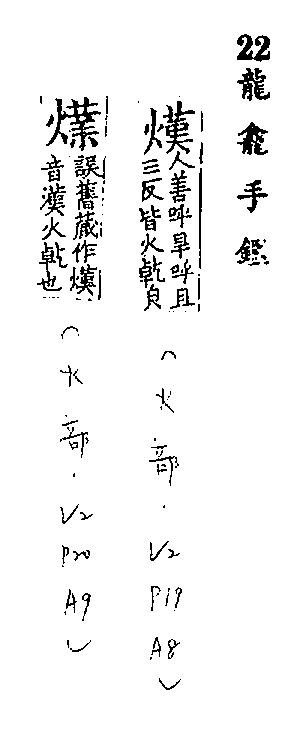 22
龍龕手鑑
熯
人善呼旱呼旦
三反皆火乹皃
(火部.V2 P19 A8)
誤舊藏作熯
音漢火乹也
(火部.V2 P20 A9)